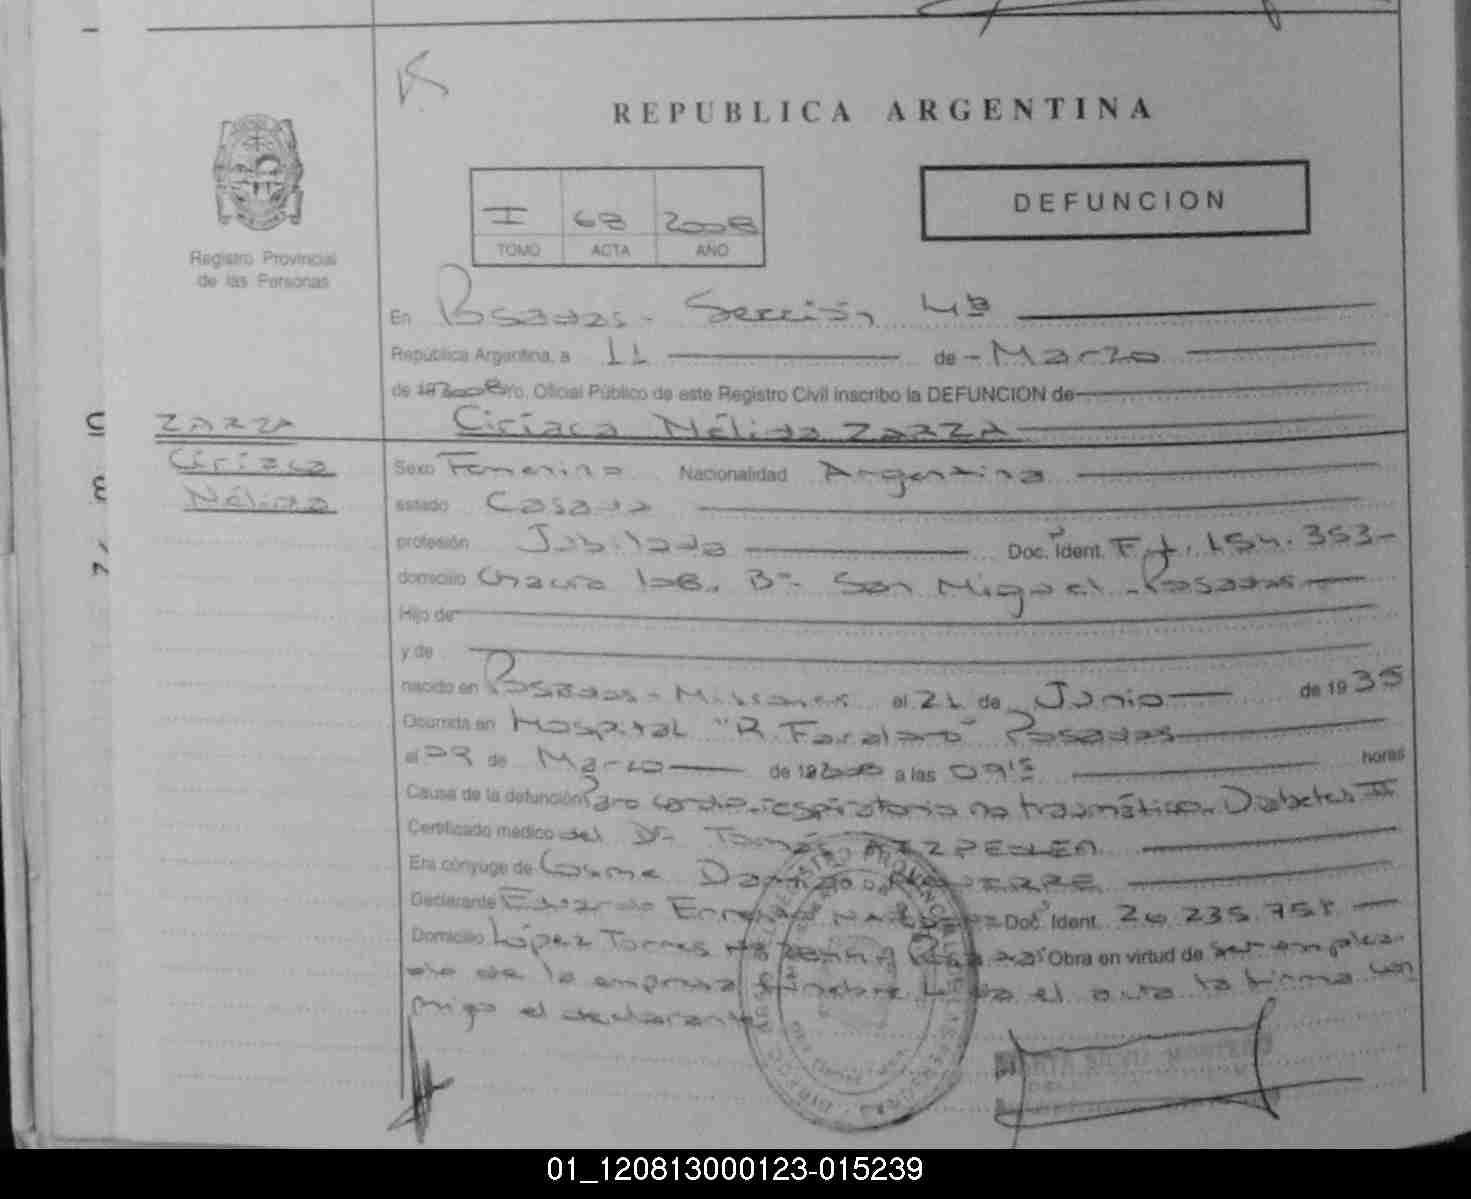 K
REPUBLICA ARGENTINA
DEFUNCION
I 68 2008
TOMO ACTA AÑO
Registro Provincial
de las Personas
En Posadas - Sección 4ª
República Argentina, a 11 de - Marzo
de 19 2008 Yo, Oficial Público de este Registro Civil inscribo la DEFUNCION de
ZARZA
Ciriaca
Nélida
Ciríaca Nélida ZARZA
Sexo Femenino Nacionalidad Argentina
estado Casada
profesión Jubilada Doc. Ident. F 154.353-
domicilio Chacra 108. Bº San Miguel - Posadas
Hijo de
y de
nacido en Posadas - Misiones el 21 de Junio de 1935
Ocurrida en Hospital "R. Favaloro" Posadas
el 09 de Marzo de 19 2008 a las 09'15 horas
Causa de la defunción Paro cardio-respiratorio no traumático. Diabetes II
Certificado médico del Dr. Tomás
Era cónyuge de Cosme Damián
Declarante Eduardo Doc. Ident. 20.235.751
Domicilio López Torres Obra en virtud de ser emplea-
do de la empresa fúnebre el acta la firma con
migo el declarante
01_120813000123-015239